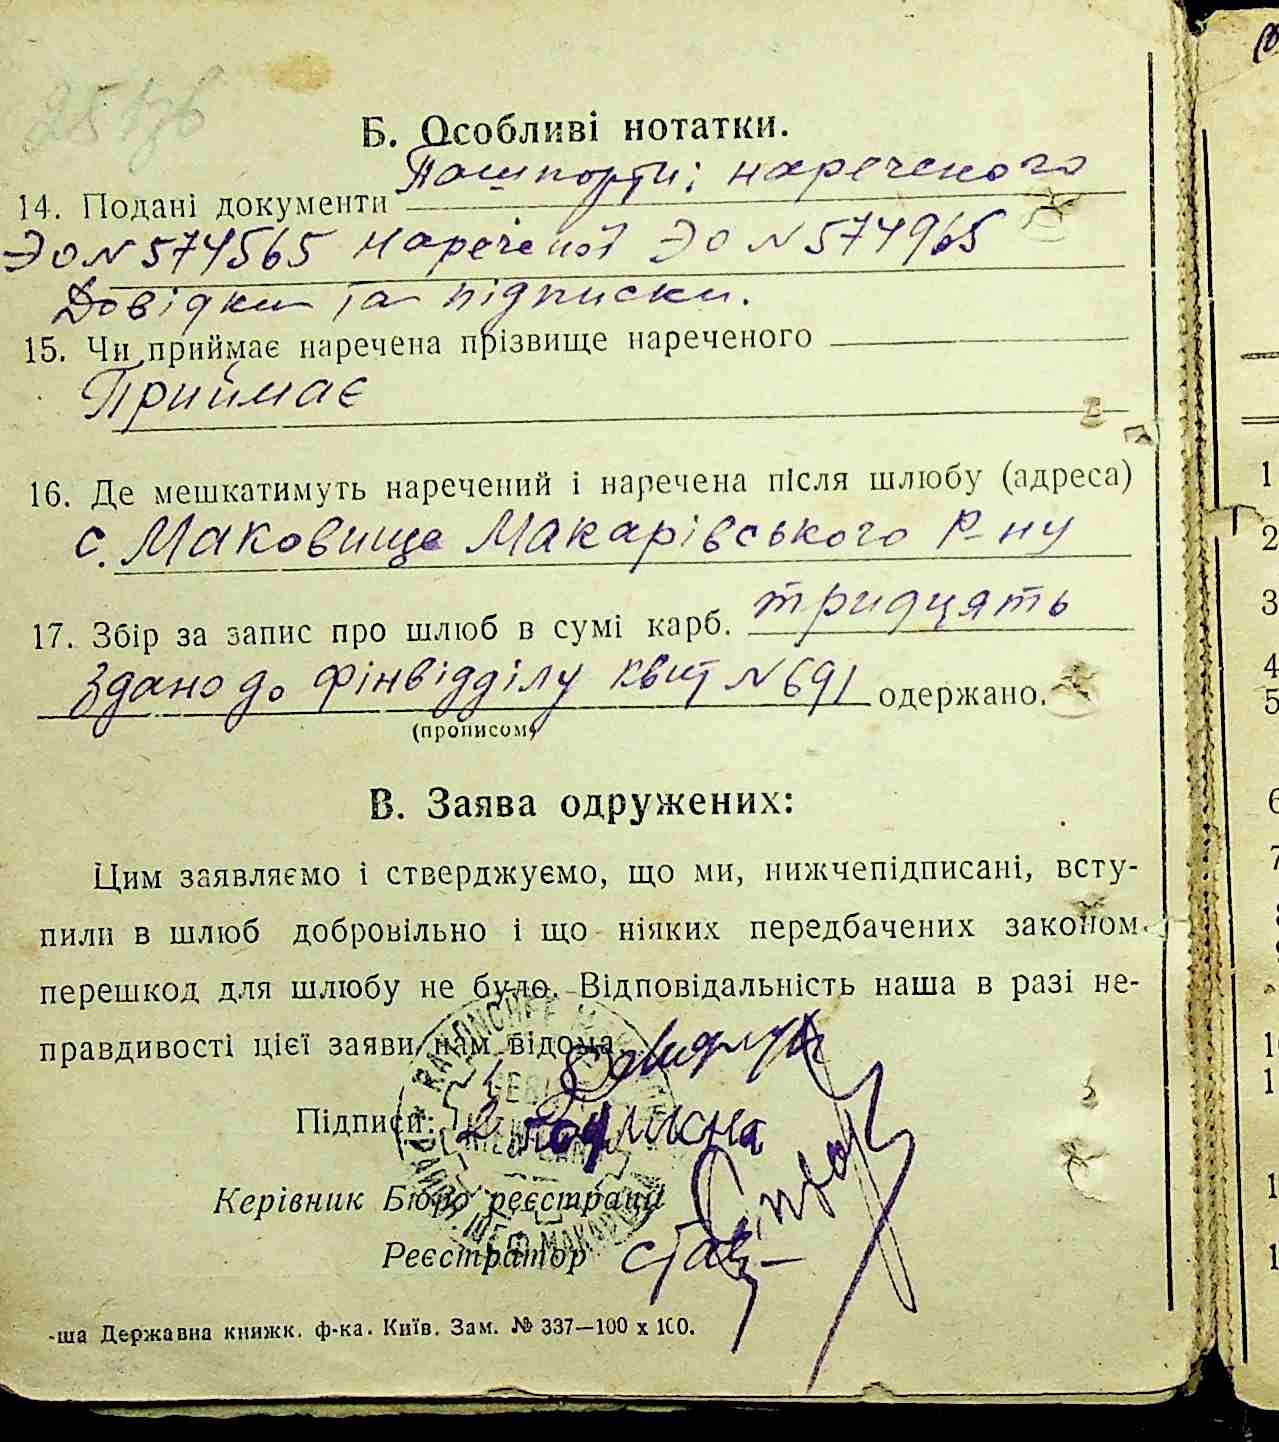 Б. Особливі нотатки.
14. Подані документи Пашпорти: нареченого
ЭО N 574565 Нареченої ЭО N 574965
Довідки та підписки.
15. Чи приймає наречена прізвище нареченого
Приймає
16. Де мешкатимуть наречений і наречена після шлюбу (адреса)
с. Маковище Макарівського Р-ну
17. Збір за запис про шлюб в сумі карб. тридцять
Здано до фінвідділу квит N 691 одержано.
(прописом)
В. Заява одружених:
Цим заявляємо і стверджуємо, що ми, нижчепідписані, всту-
пили в шлюб добровільно і що ніяких передбачених законом
перешкод для шлюбу не було. Відповідальність наша в разі не-
правдивості цієї заяви нам відома
Підписи: 1
2
Керівник Бюро реєстрації
Реєстратор
-ша Державна книжк. ф-ка. Київ. Зам. № 337—100 x 100.
1
2
3
4
5
6
7